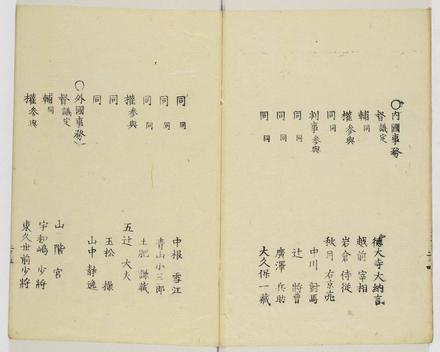 ○内國事務
督 議定 德大寺大納言
輔 同 越前宰相
權 參與 岩倉侍從
同 同 秋月右京亮
判事 參與 中川對馬
同 同 辻將曹
同 同 廣澤兵助
同 同 大久保一藏
同 同 中根雪江
同 同 青山小三郎
同 同 土肥謙藏
權 參與 五辻大夫
同 玉松操
同 山中靜逸
○外國事務
督 議定 山階宮
輔 同 宇和嶋少將
權 參與 東久世前少將